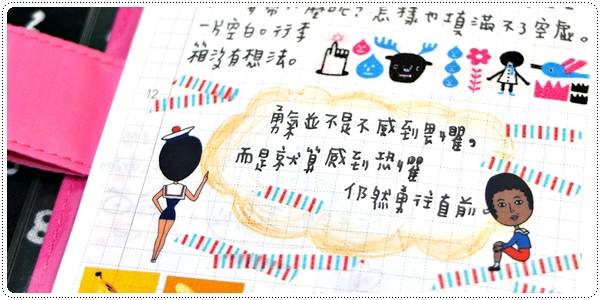 麼呢?怎樣也填滿不了空虛。
一片空白。行李
箱沒有想法。
12
勇氣並不是不感到畏懼,
而是就算感到恐懼
仍然勇往直前。